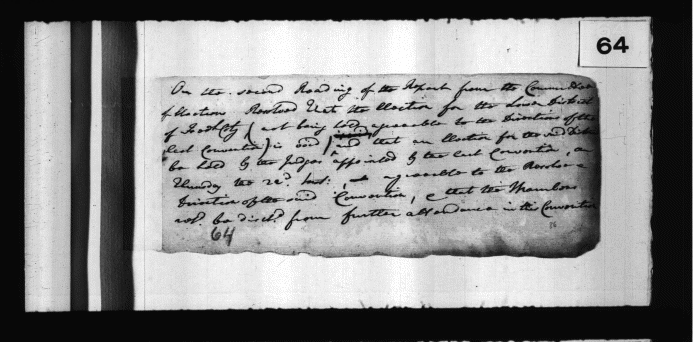 64
On the second Reading of the Report from the Committee
of Elections Resolved that the Election for the Lower District
of Fredk Cty (not being held agreeable to the Directions of the
last Convention) is void, and that an Election for the said Dist
be held by the Judges appointed by the last Convention, on
Thursday the 22d Inst:, agreeable to the Resolve &
Direction of the said Convention, & that the Members
be disch'd from further attendance in this Convention
64